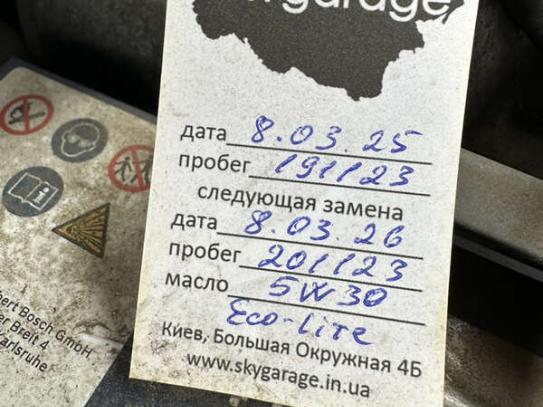 дата 8.03.25
пробег 191123
следующая замена
дата 8.03.26
пробег 201123
масло 5W30
Eco-lite
Киев, Большая Окружная 4Б
www.skygarage.in.ua
Bosch GmbH
Breit 4
Karlsruhe